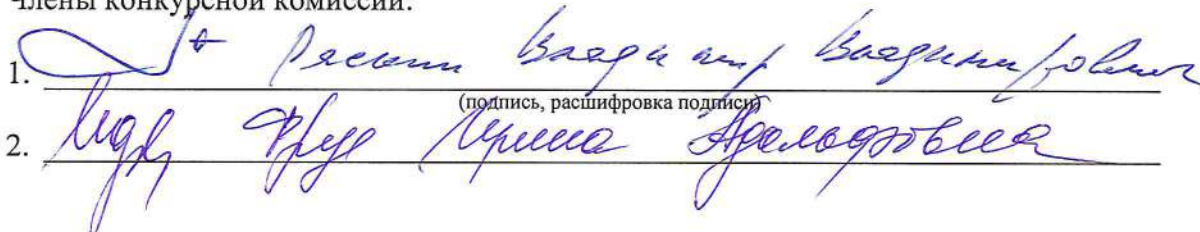 Члены конкурсной комиссии:
1. Владимир Владимирович
(подпись, расшифровка подписи)
2. Ирина Адольфовна